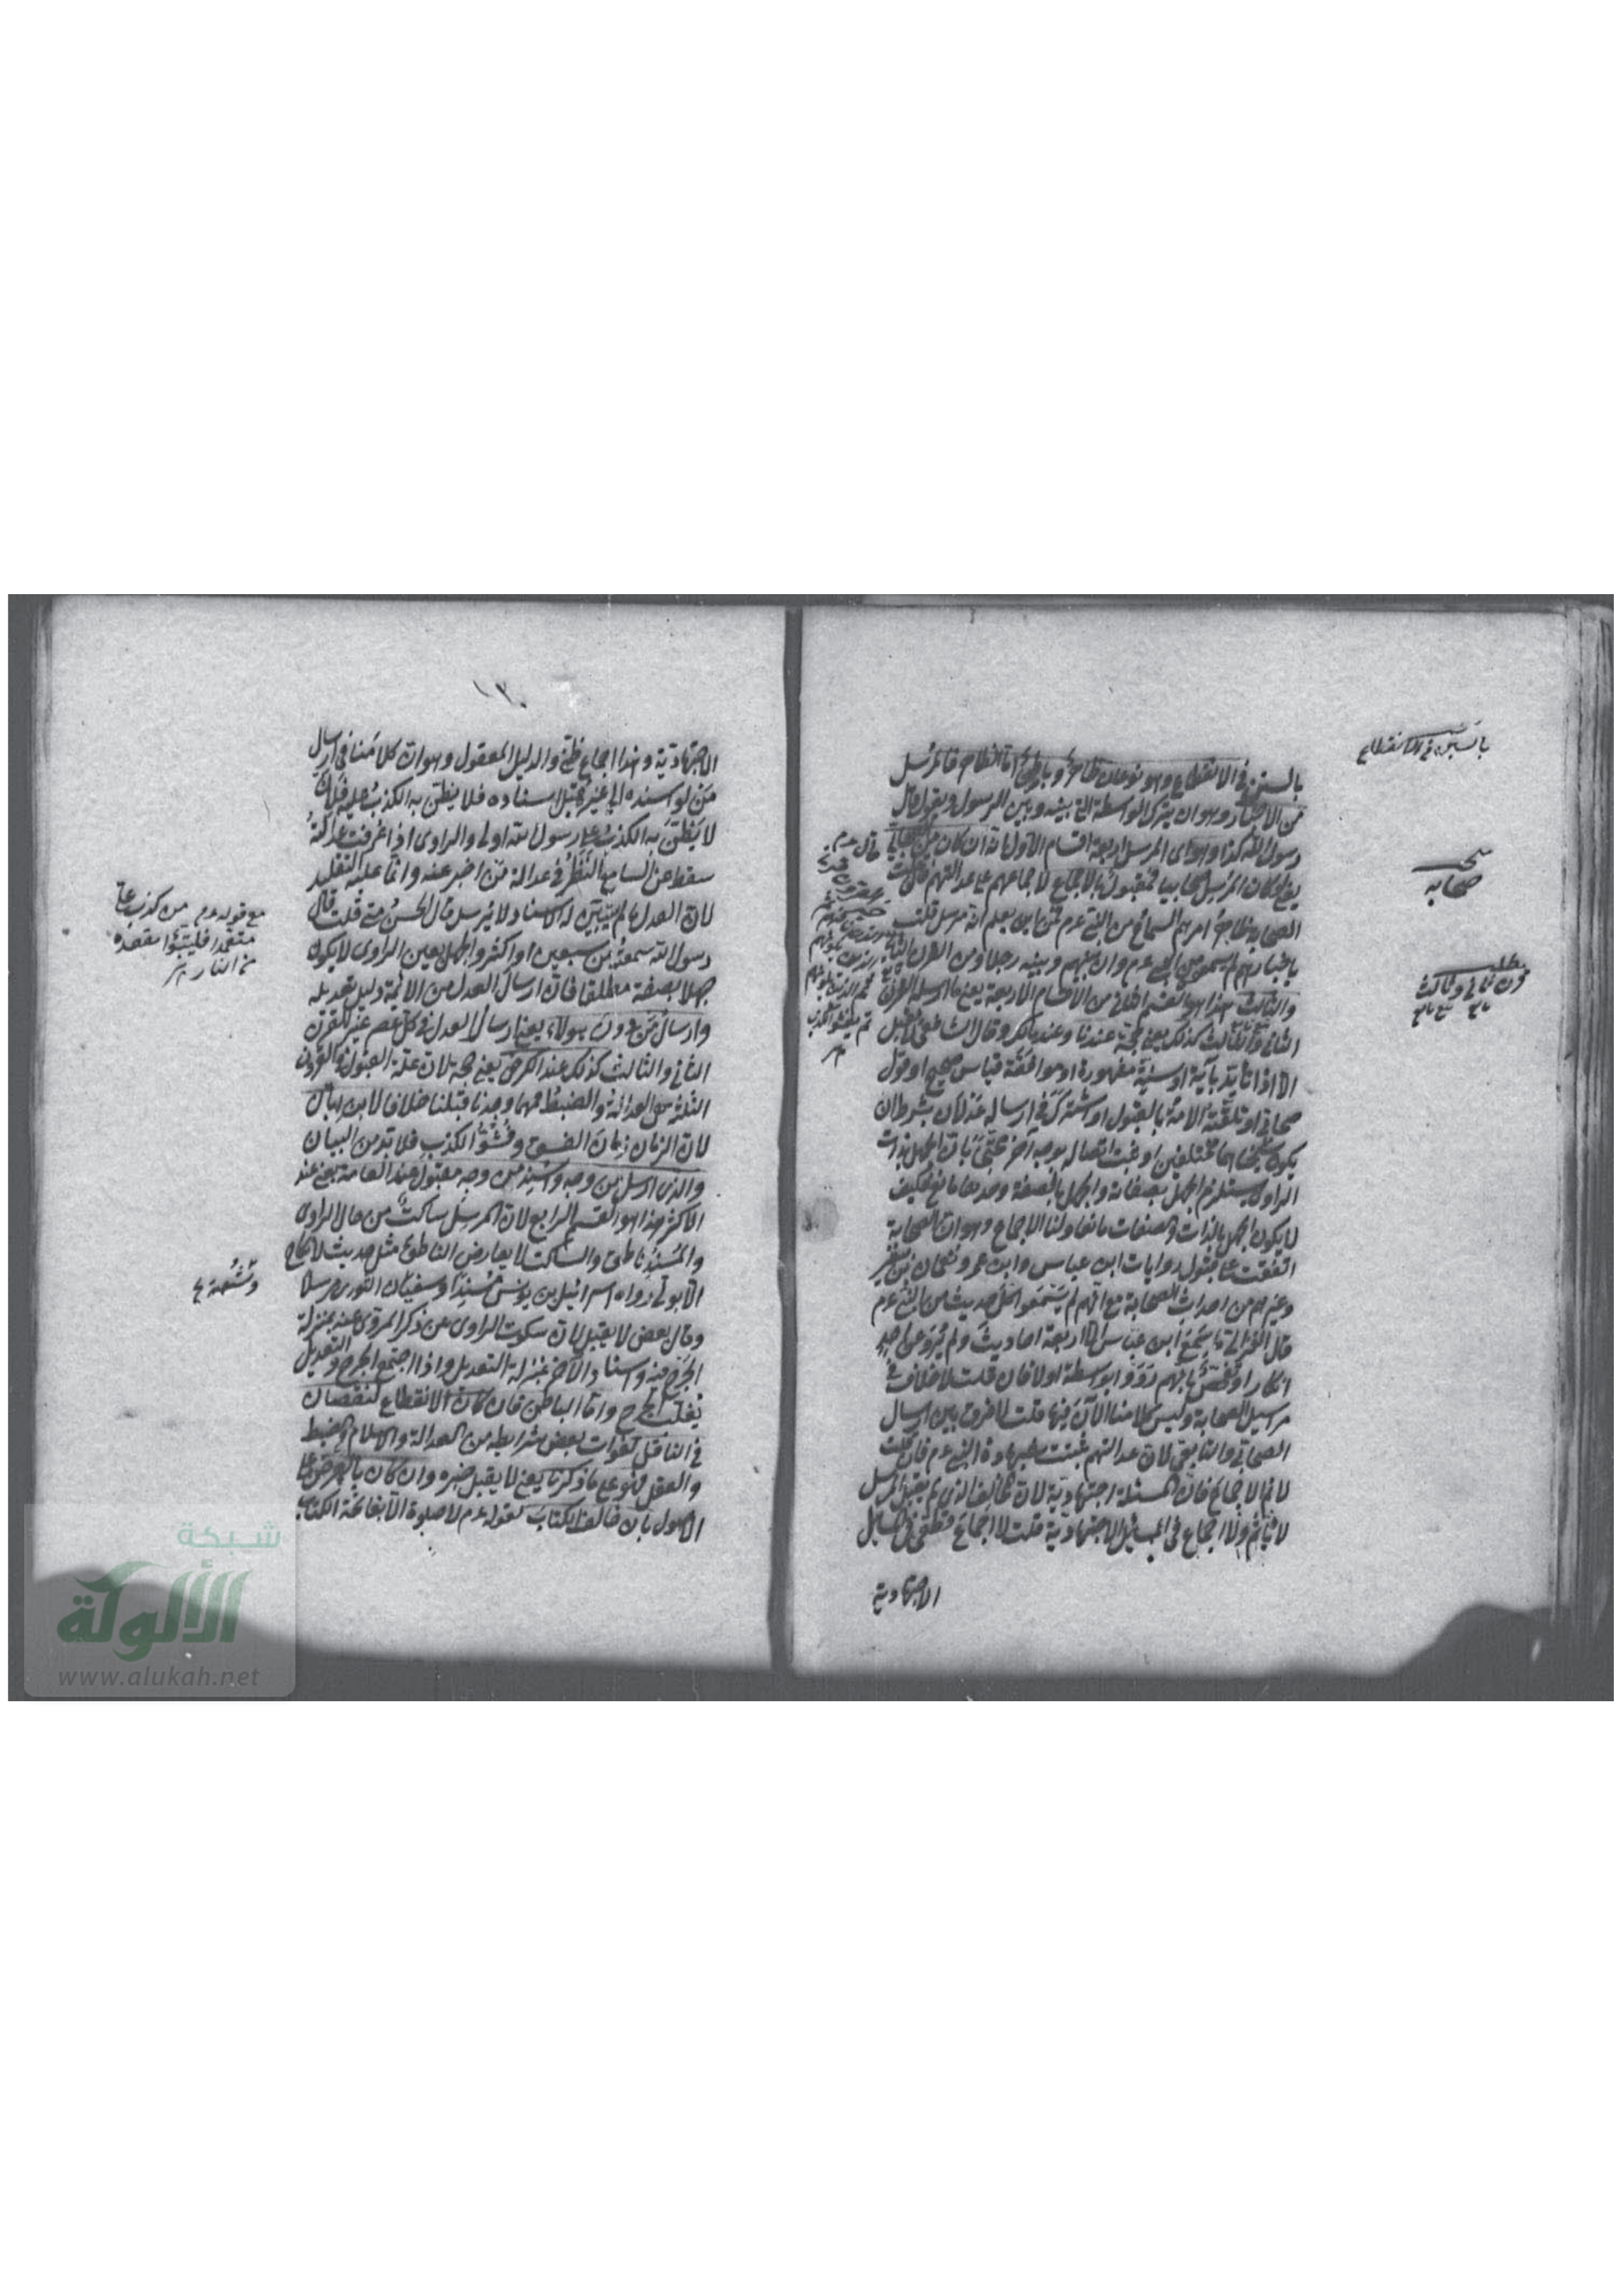 بالسنن في الانقطاع وهو نوعان ظاهر وباطن اما الظاهر فالمرسل
من الاخبار وهو ان يترك الواسطة التي بينه وبين الرسول ويقول قال
رسول الله كذا وهو اى المرسل اربعة اقسام الاول انه ان كان من الصحابي
يعنى ان كان المرسل صحابيا فمقبول بالاجماع لاجماعهم على عدالتهم فان قلت
الصحابة ظاهر امرهم السماع من النبي عم فمن اين يعلم انه مرسل قلت
باخبارهم سمع من النبي عم وان بينهم وبينه رجلا ومن القرن الثاني
والثالث هذا هو القسم الثاني من الاقسام الاربعة يعنى ما ارسله القرن
الثاني والثالث كذلك يعنى حجة عندنا وعند مالك وقال الشافعي لا يقبل
الا اذا تأيد بآية او سنة مشهورة او موافقة قياس صحيح او قول
صحابي او تلقته الامة بالقبول او اشترك في ارساله عدلان بشرط ان
يكون شيخاهما مختلفين او ثبت اتصاله بوجه آخر محتجا بان الجهل بذات
الراوي يستلزم الجهل بصفاته والجهل بالصفة وحدها مانع فكيف
لا يكون الجهل بالذات والصفات مانعا ولنا الاجماع وهو ان الصحابة
اتفقت على قبول روايات ابن عباس وابن عمر ونعمان بن بشير
وغيرهم من احداث الصحابة مع انهم لم يسمعوا كل حديث من النبي عم
قال الغزالي ما سمع ابن عباس الا اربعة احاديث ولم يرو عن احد
انكار او تفحص بانهم رووا بواسطة او لا فان قلت لا خلاف في
مراسيل الصحابة وليس كلامنا الآن فيها قلت لا فرق بين ارسال
الصحابي والتابعي لان عدالتهم ثبتت بشهادة النبي عم فان قلت
لا نم الاجماع فان المسئلة اجتهادية لان المخالف الذي لم يقبل المرسل
لا يأثم ولا اجماع في المسائل الاجتهادية قلت لا اجماع قطعي في المسائل
الاجتهادية
باب السنن في الانقطاع
صحابه
مطلب
قرن ثاني وثالث
تابع تبع تابع
قال عم
١٢٠
الاجتهادية وهذا اجماع ظني والدليل المعقول وهو ان كلامنا في ارسال
من لو اسنده الى غيره قبل اسناده فلا يظن به الكذب عليه فلان
لا يظن به الكذب على رسول الله اولى والراوى اذا عرفت عدالته
سقط عن السامع النظر في عدالة من اخبر عنه وانما عليه التقليد
لان العدل ما لم يتبين له الاسناد لا يرسل قال الحسن متى قلت قال
رسول الله سمعته من سبعين او اكثر والجهل بعين الراوى لا يكون
جهلا بصفته مطلقا فان ارسال العدل من الائمة دليل تعديله
وارسال من دون هؤلاء يعنى ارسال العدل في كل عصر غير القرن
الثاني والثالث كذلك عند الكرخي يعنى حجة لان علة القبول في القرون
الثلثة هي العدالة والضبط فمهما وجدنا قبلنا خلافا لابن ابان
لان الزمان زمان الفسق وفشو الكذب فلا بد من البيان
والذى ارسل من وجه واسند من وجه مقبول عند العامة يعنى عند
الاكثر هذا هو القسم الرابع لان المرسل ساكت من حال الراوى
والمسند ناطق والساكت لا يعارض الناطق مثل حديث لا نكاح
الا بولي رواه اسرائيل بن يونس مسندا وسفيان الثورى مرسلا
وقال بعض لا يقبل لان سكوت الراوى عن ذكر المروى عنه بمنزلة
الجرح فيه واسناد الآخر بمنزلة التعديل واذا اجتمع الجرح والتعديل
يغلب الجرح واما الباطن فان كان الانقطاع لنقصان
في الناقل كفوات بعض شرايطه من العدالة والاسلام والضبط
والعقل فهو على ما ذكرنا يعنى لا يقبل خبره وان كان بالعرض على
الاصول بان خالف الكتاب كقوله عم لا صلوة الا بفاتحة الكتاب
مع قوله عم من كذب على
متعمدا فليتبؤا مقعده
من النار
وشعبة
شبكة
الألوكة
www.alukah.net